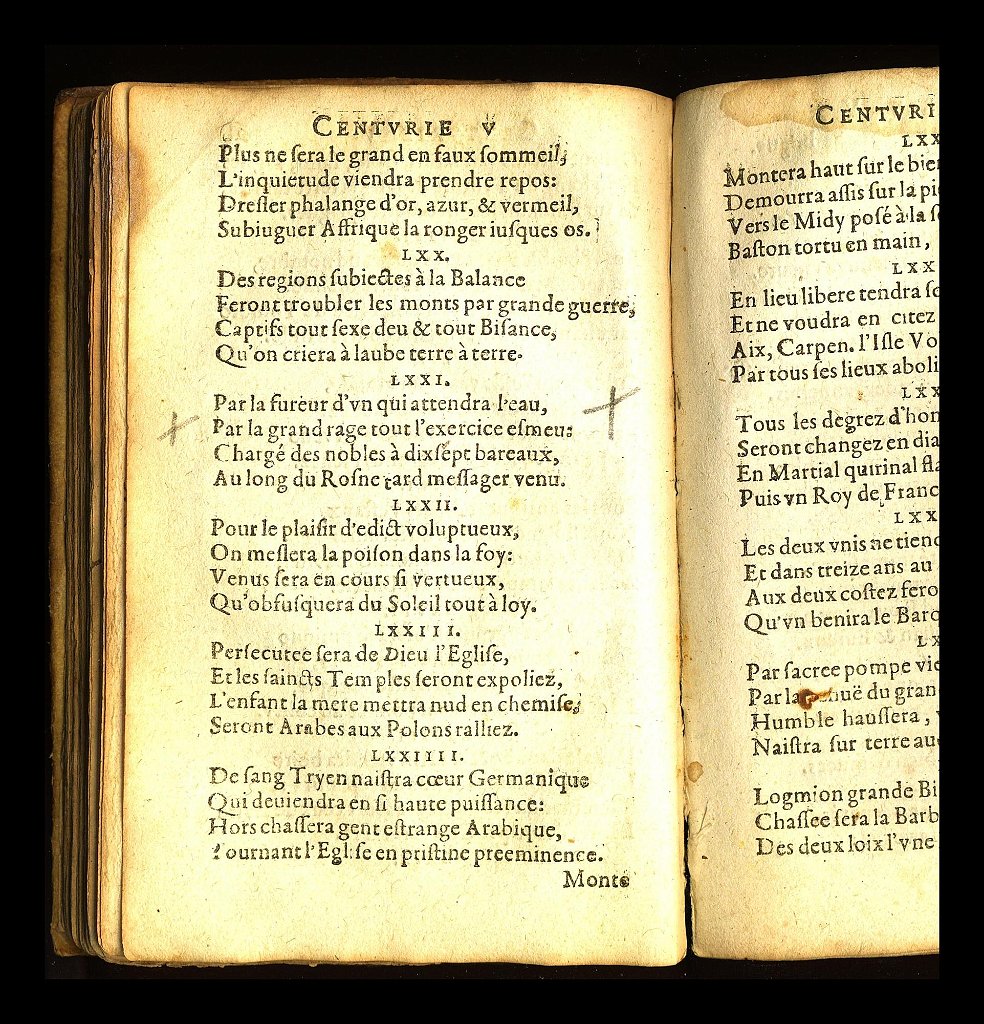 CENTVRIE V
Plus ne ſera le grand en faux ſommeil,
L'inquietude viendra prendre repos:
Dreſſer phalange d'or, azur, & vermeil,
Subiuguer Affrique la ronger iuſques os.
LXX.
Des regions ſubiectes à la Balance
Feront troubler les monts par grande guerre,
Captifs tout ſexe deu & tout Biſance,
Qu'on criera à laube terre à terre.
LXXI.
Par la fureur d'vn qui attendra l'eau,
Par la grand rage tout l'exercice eſmeu:
Chargé des nobles à dixſept bareaux,
Au long du Roſne tard meſſager venu.
LXXII.
Pour le plaiſir d'edict voluptueux,
On meſlera la poiſon dans la foy:
Venus ſera en cours ſi vertueux,
Qu'obfuſquera du Soleil tout à loy.
LXXIII.
Perſecutee ſera de Dieu l'Egliſe,
Et les ſaincts Temples ſeront expoliez,
L'enfant la mere mettra nud en chemiſe,
Seront Arabes aux Polons ralliez.
LXXIIII.
De ſang Tryen naiſtra cœur Germanique
Qui deuiendra en ſi haute puiſſance:
Hors chaſſera gent eſtrange Arabique,
Tournant l'Egliſe en priſtine preeminence.
Monte
CENTVRI
LXX
Montera haut ſur le bien
Demourra aſſis ſur la pi
Vers le Midy poſé à la ſe
Baſton tortu en main,
LXX
En lieu libere tendra ſo
Et ne voudra en citez
Aix, Carpen. l'Iſle Vo
Par tous ſes lieux aboli
LXX
Tous les degrez d'hon
Seront changez en dia
En Martial quirinal fla
Puis vn Roy de Franc
LXX
Les deux vnis ne tienc
Et dans treize ans au
Aux deux coſtez fero
Qu'vn benira le Barq
LX
Par ſacree pompe vie
Par la du gran
Humble hauſſera,
Naiſtra ſur terre au
Logmion grande Bi
Chaſſee ſera la Barb
Des deux loix l'vne